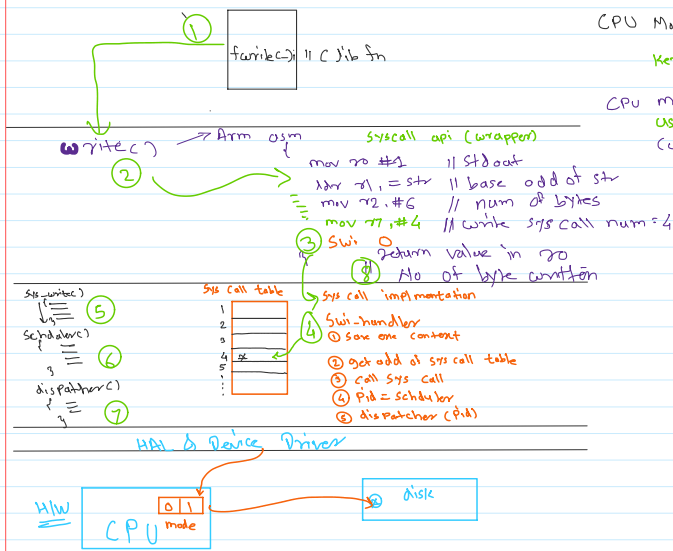 1
CPU Mo
fwrite(); // C lib fn
Ke
CPU m
us
write() → Arm asm
syscall api (wrapper)
{
mov r0 #1 // stdout
2
ldr r1, = str // base add of str
mov r2, #6 // num of bytes
mov r7, #4 // write sys call num = 4
3 Swi 0
} // return value in r0
8 // No of byte written
sys_write()
{
}
5
sys call table
1
2
3
4 x
5
sys call implmentation
4 Swi-handler
① save one context
② get add of sys call table
③ call sys call
④ pid = schduler
⑤ dispatcher (pid)
schduler()
{
}
6
dispather()
{
}
7
HAL & Device Driver
H/W
0 1
mode
CPU
disk